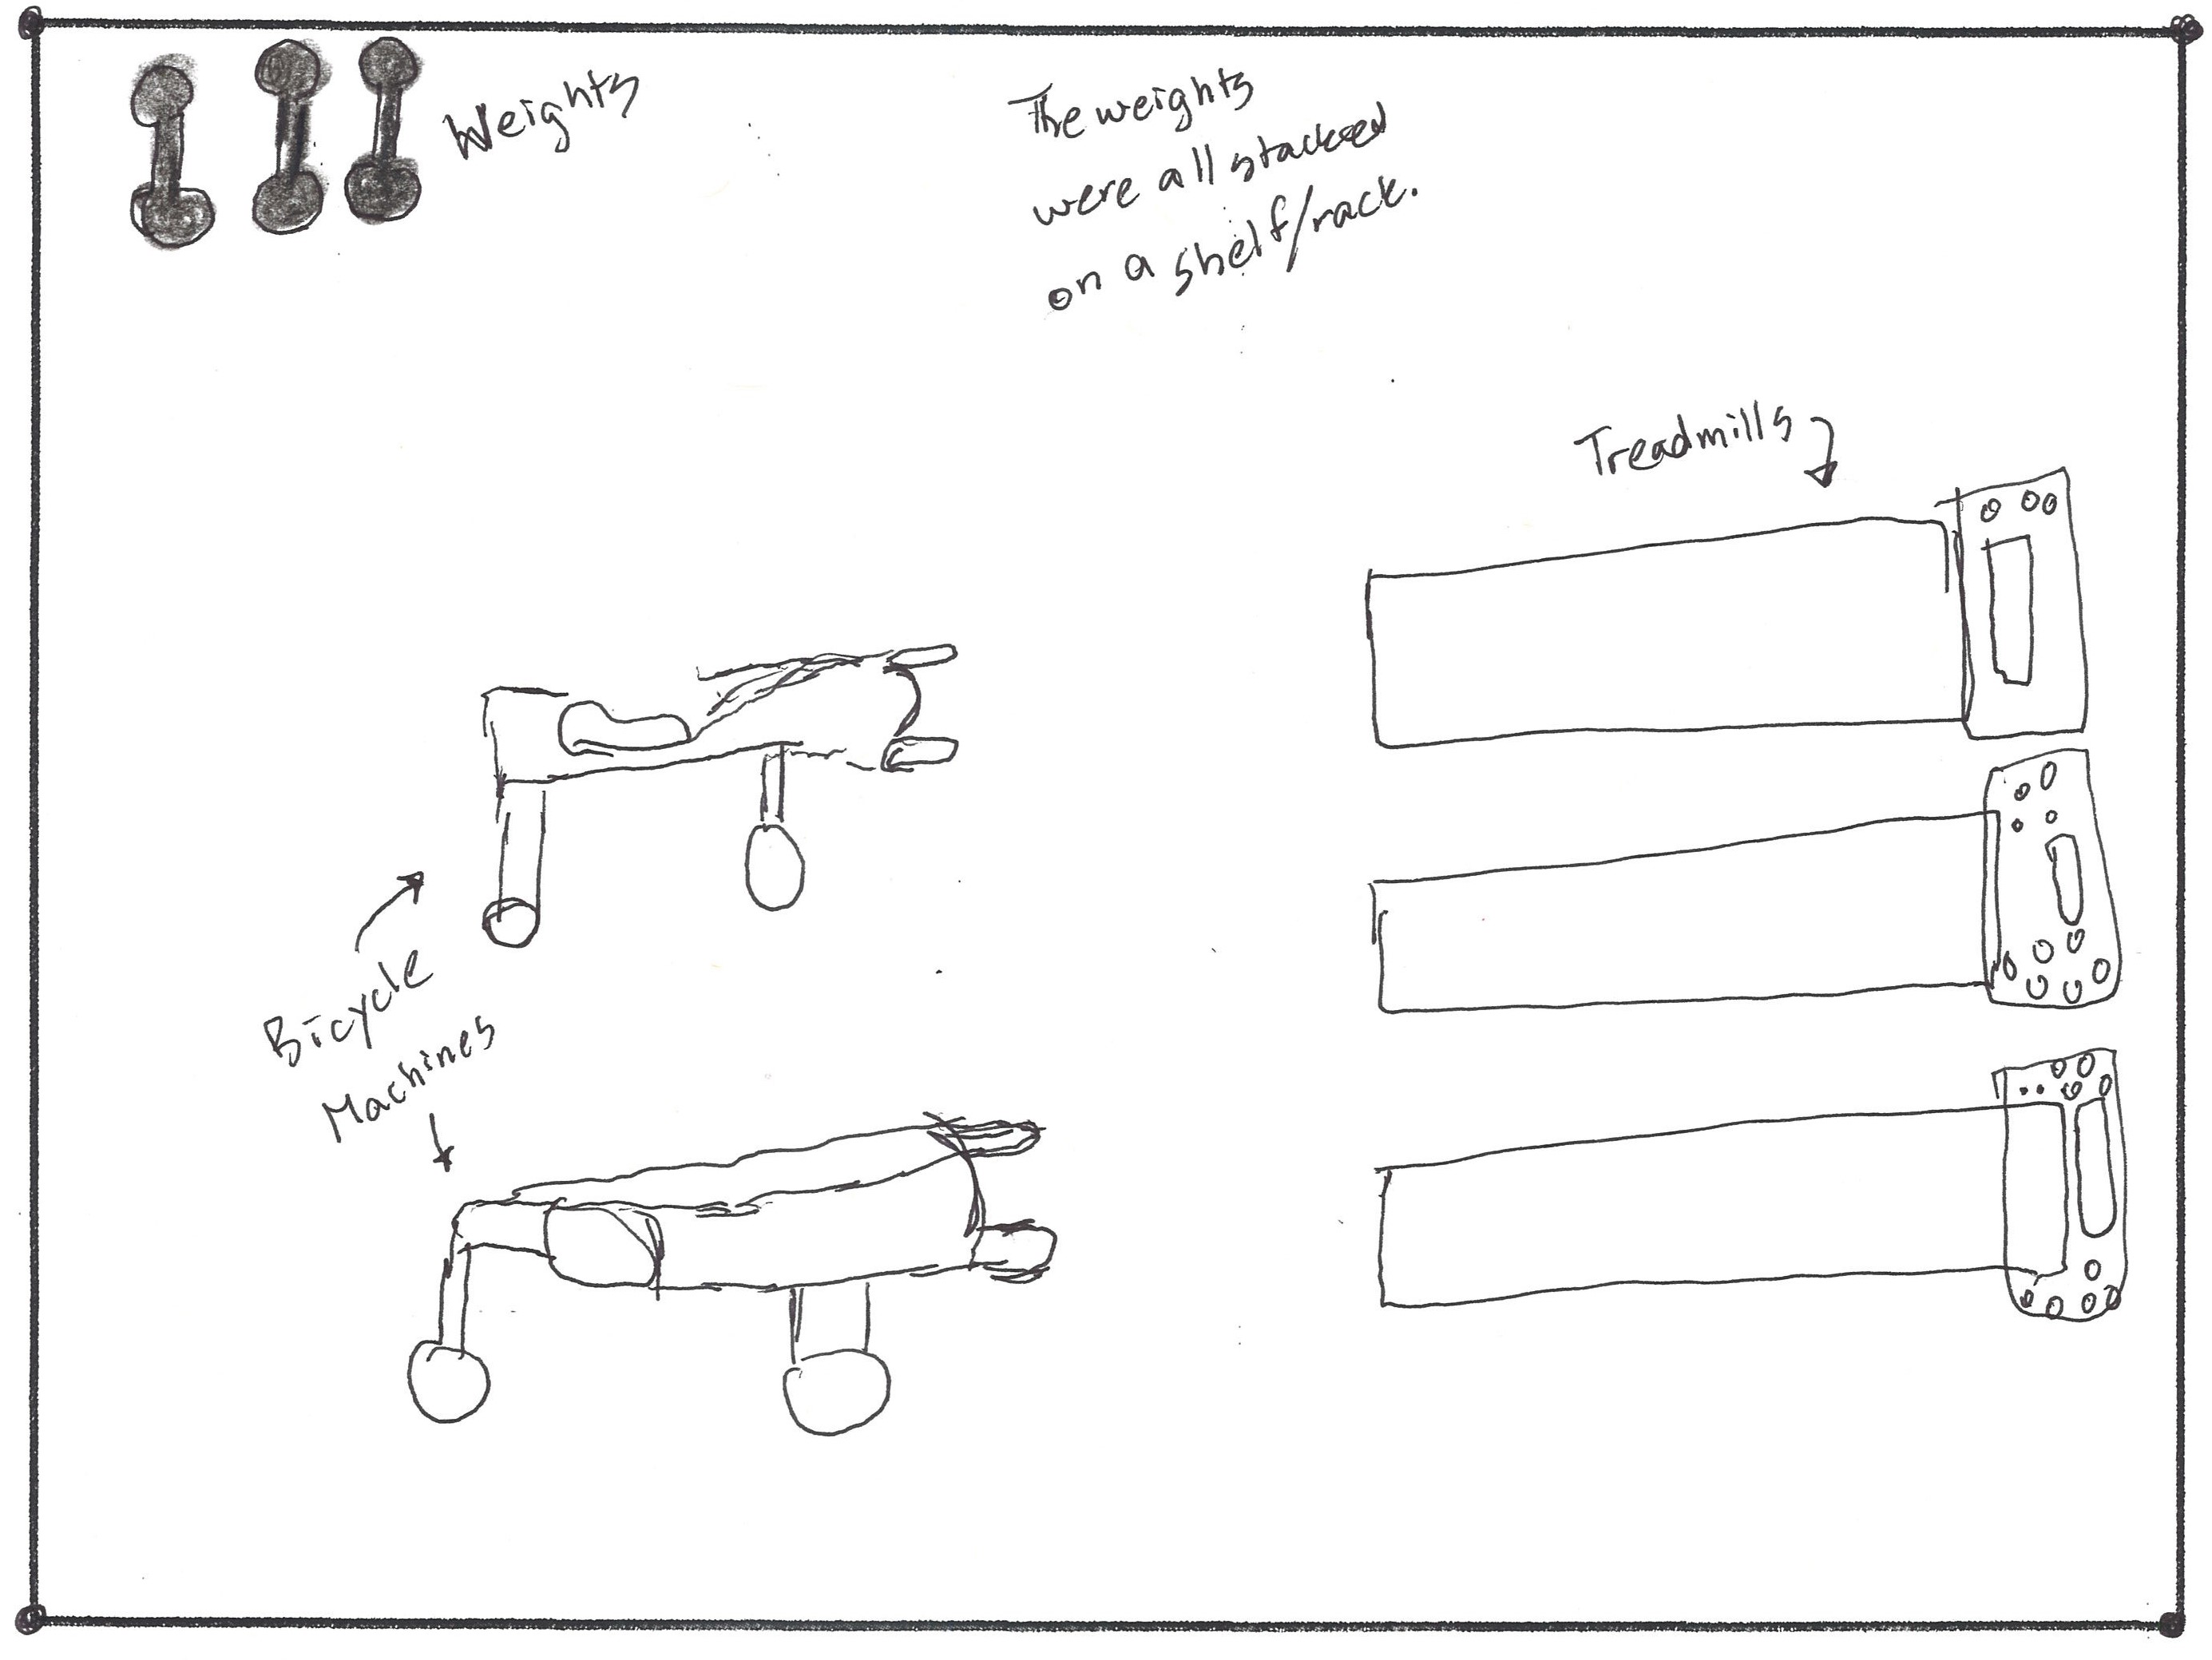 Weights
The weights
were all stacked
on a shelf/rack.
Treadmills
Bicycle
Machines